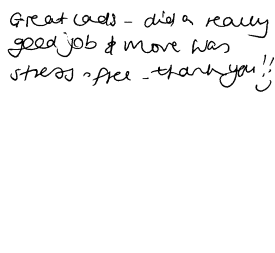 Great lads - did a really
good job & move was
stress-free - thank you!!